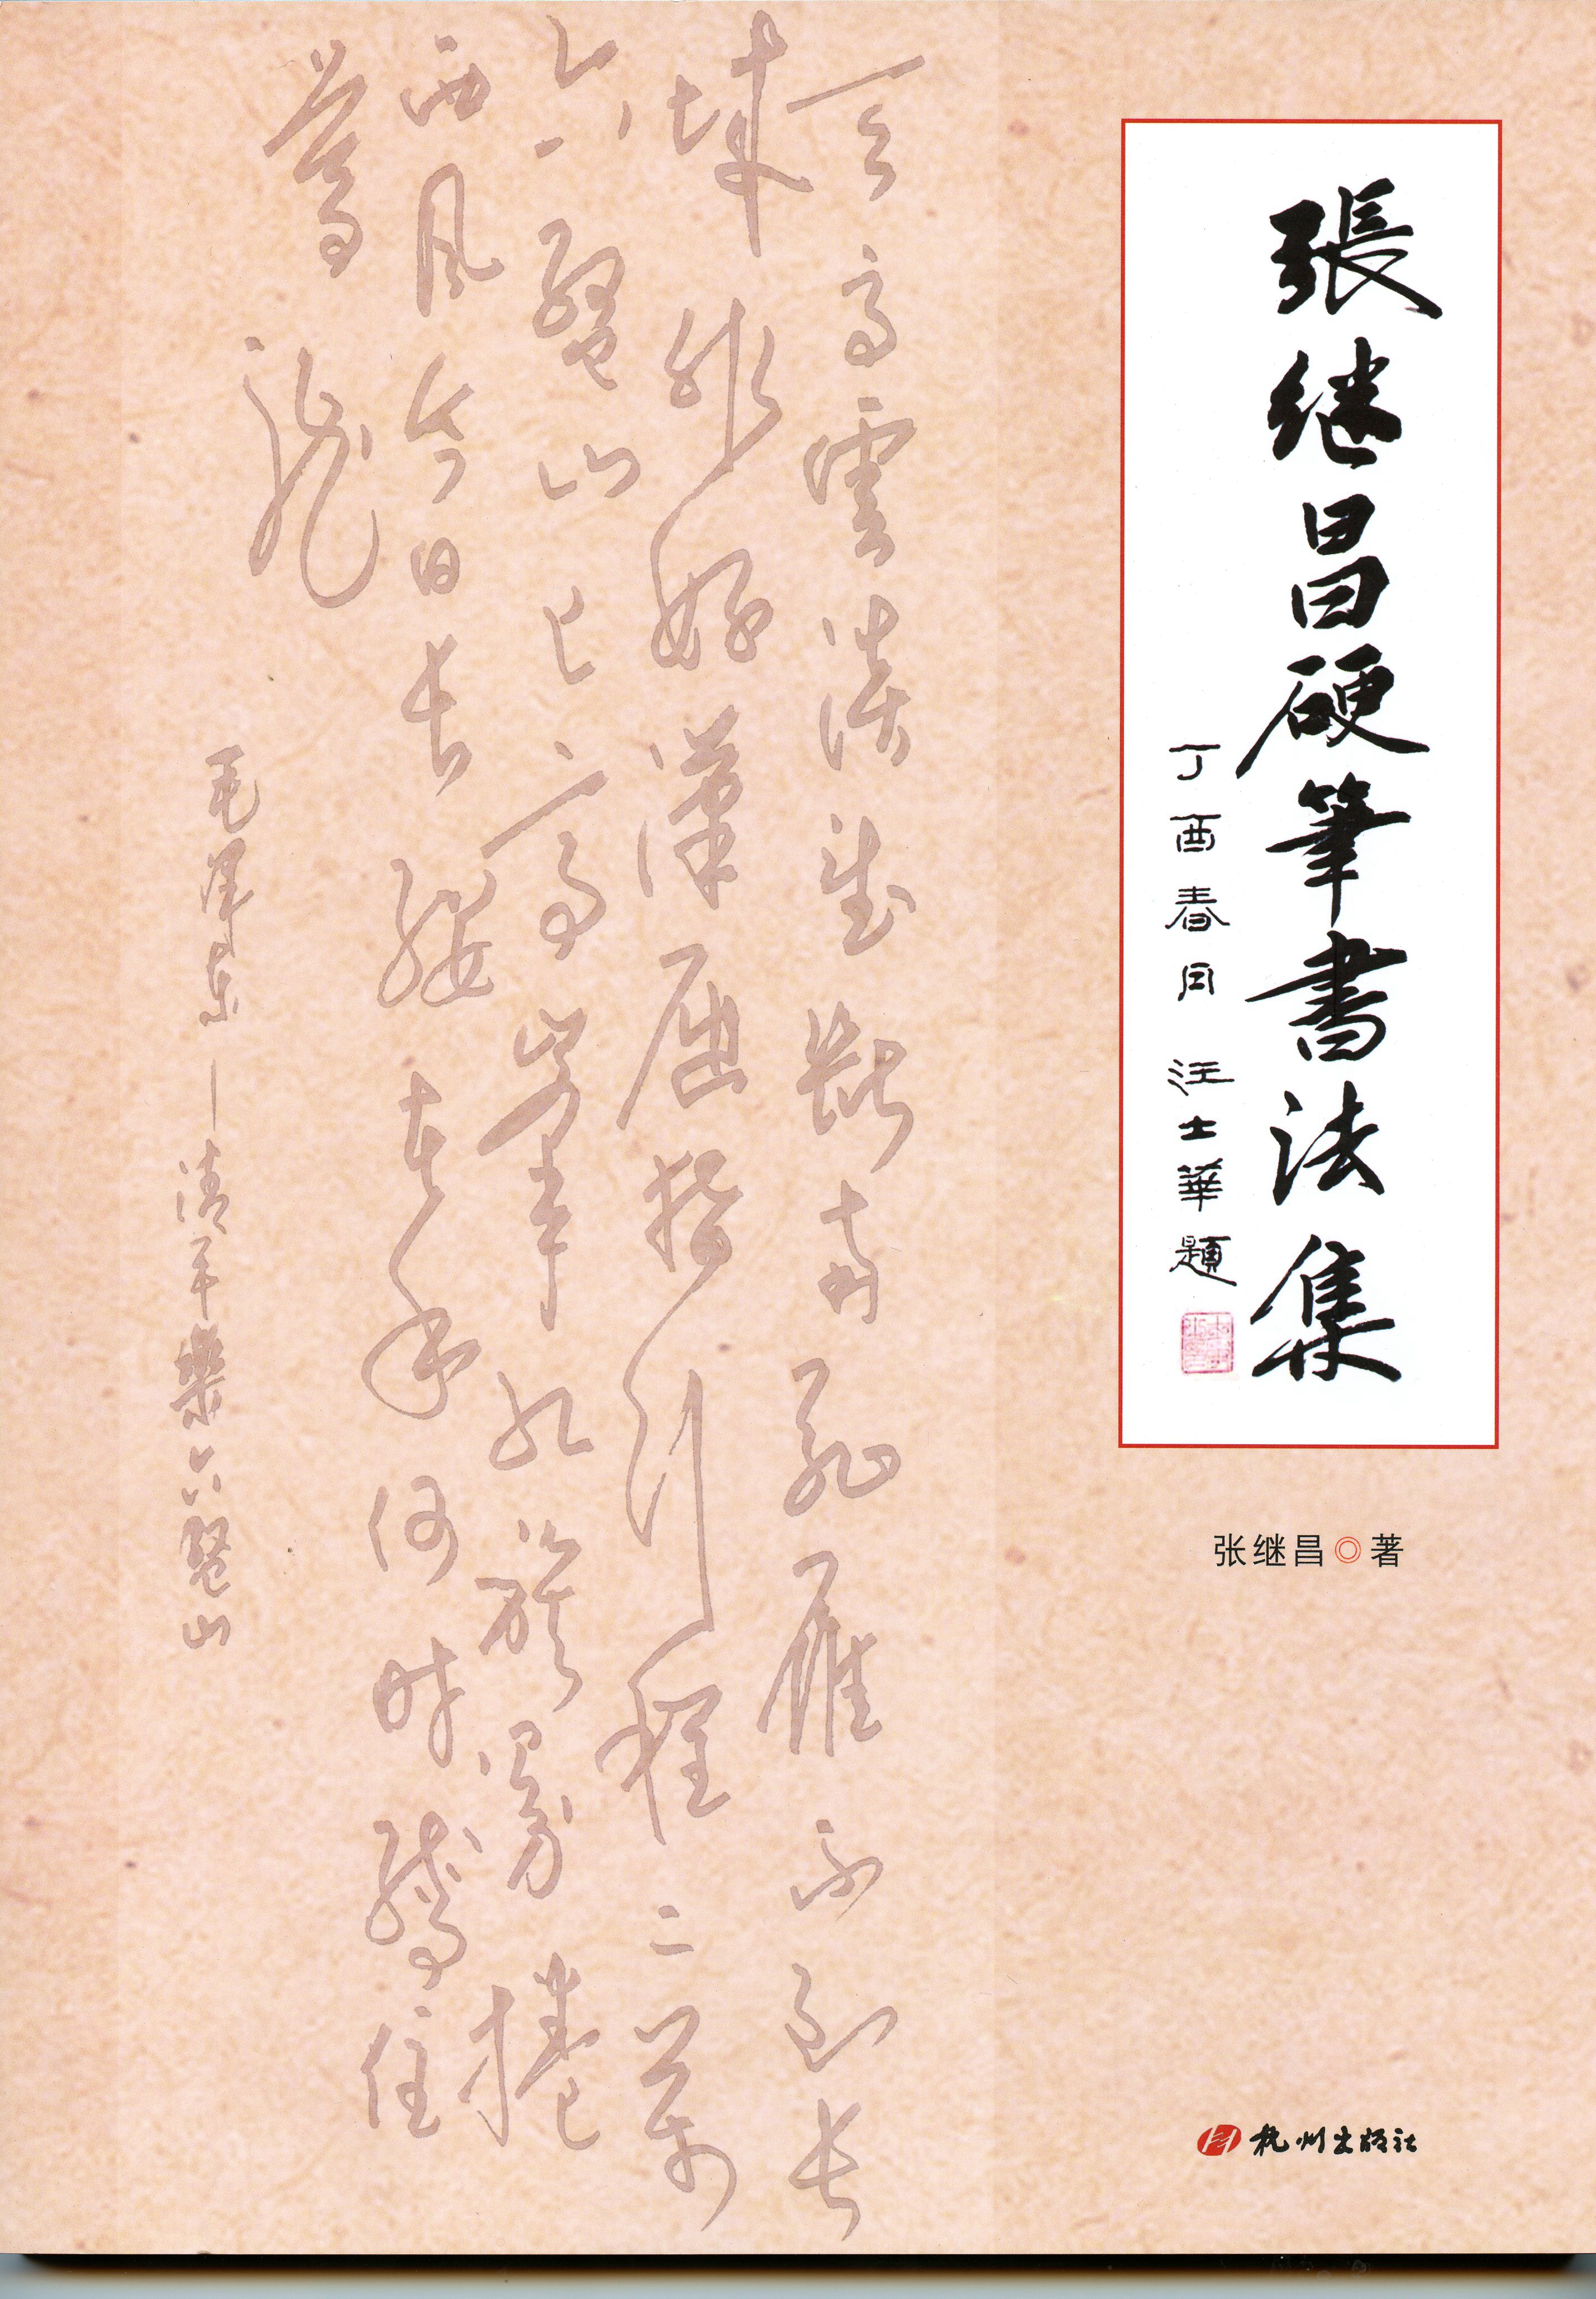 張继昌硬筆書法集
丁酉春月 汪士華題
张继昌◎著
杭州出版社
天高雲淡望斷南飛雁不到长
城非好漢屈指行程二萬
六盤山上高峰红旗漫捲
西風今日长纓在手何时縛住
蒼龍
毛泽东—清平樂六盤山